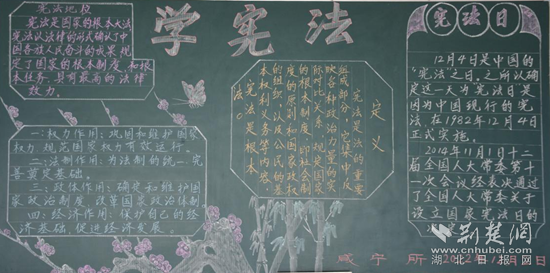 学宪法
宪法地位
宪法是国家的根本大法
宪法以法律的形式确认了中
国各族人民奋斗的成果,规
定了国家的根本制度,和根
本任务,具有最高的法律
效力。
一:权力作用:巩固和维护国家
权力,规范国家权力有效运行。
二:法制作用:为法制的统一、完
善奠定基础。
三:政体作用:确定和维护国
家政治制度,改革国家政治体制
四:经济作用:保护自己的经
济基础,促进经济发展
定义
宪法是法的重要
组成部分,它集中反
映各种政治力量的实
际对比关系,规定国家
的根本制度,即社会制
度的原则和国家政权
的组织,以及公民的基
本权利义务等内容。
宪法是根本
法。
宪法日
12月4日是中国的
"宪法"之日,之所以确
定这一天为宪法日是
因为中国现行的宪
法在1982年12月4日
正式实施。
2014年11月1日十二
届全国人大常委第十
一次会议经表决通过
了全国人大常委关于
设立国家宪法日的
咸宁所
荆楚网
www.cnhubei.com
湖北日报网